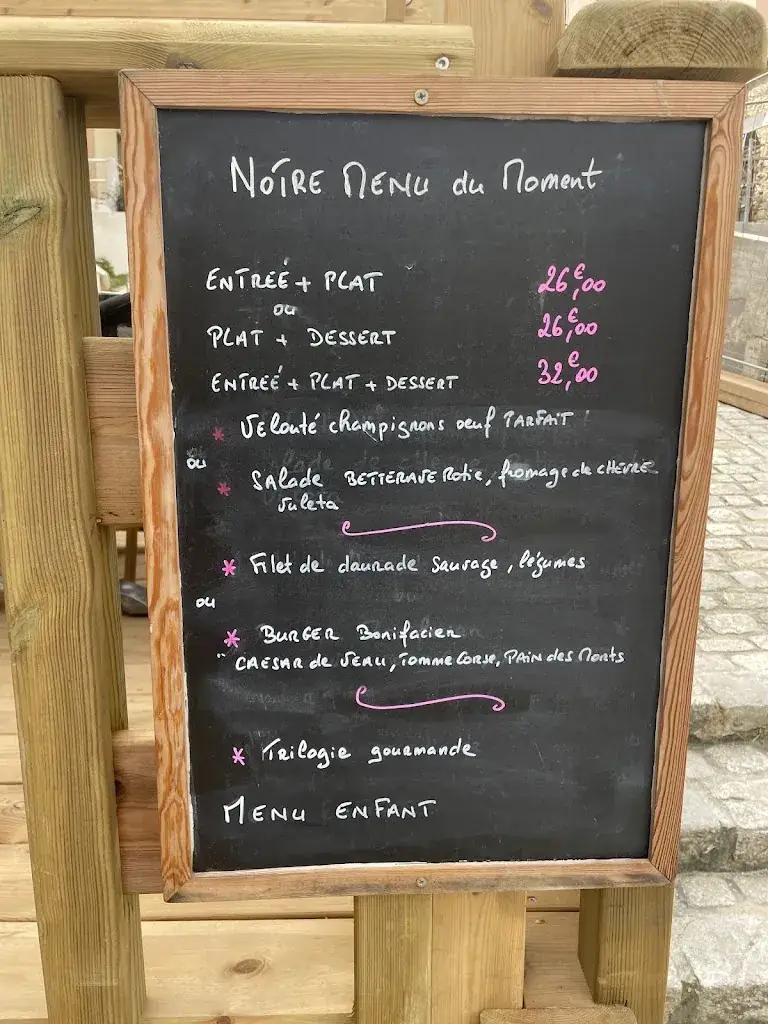 NOTRE MENU du Moment
ENTREÉ + PLAT 26€,00
ou
PLAT + DESSERT 26€,00
ENTREÉ + PLAT + DESSERT 32€,00
* Velouté champignons oeuf PARFAIT
ou
* Salade BETTERAVE Rotie, fromage de CHEVRE
* Filet de daurade Sauvage, légumes
ou
* BURGER Bonifacien
CAESAR de VEAU, Tomme Corse, PAIN des Morts
* Trilogie gourmande
MENU ENFANT